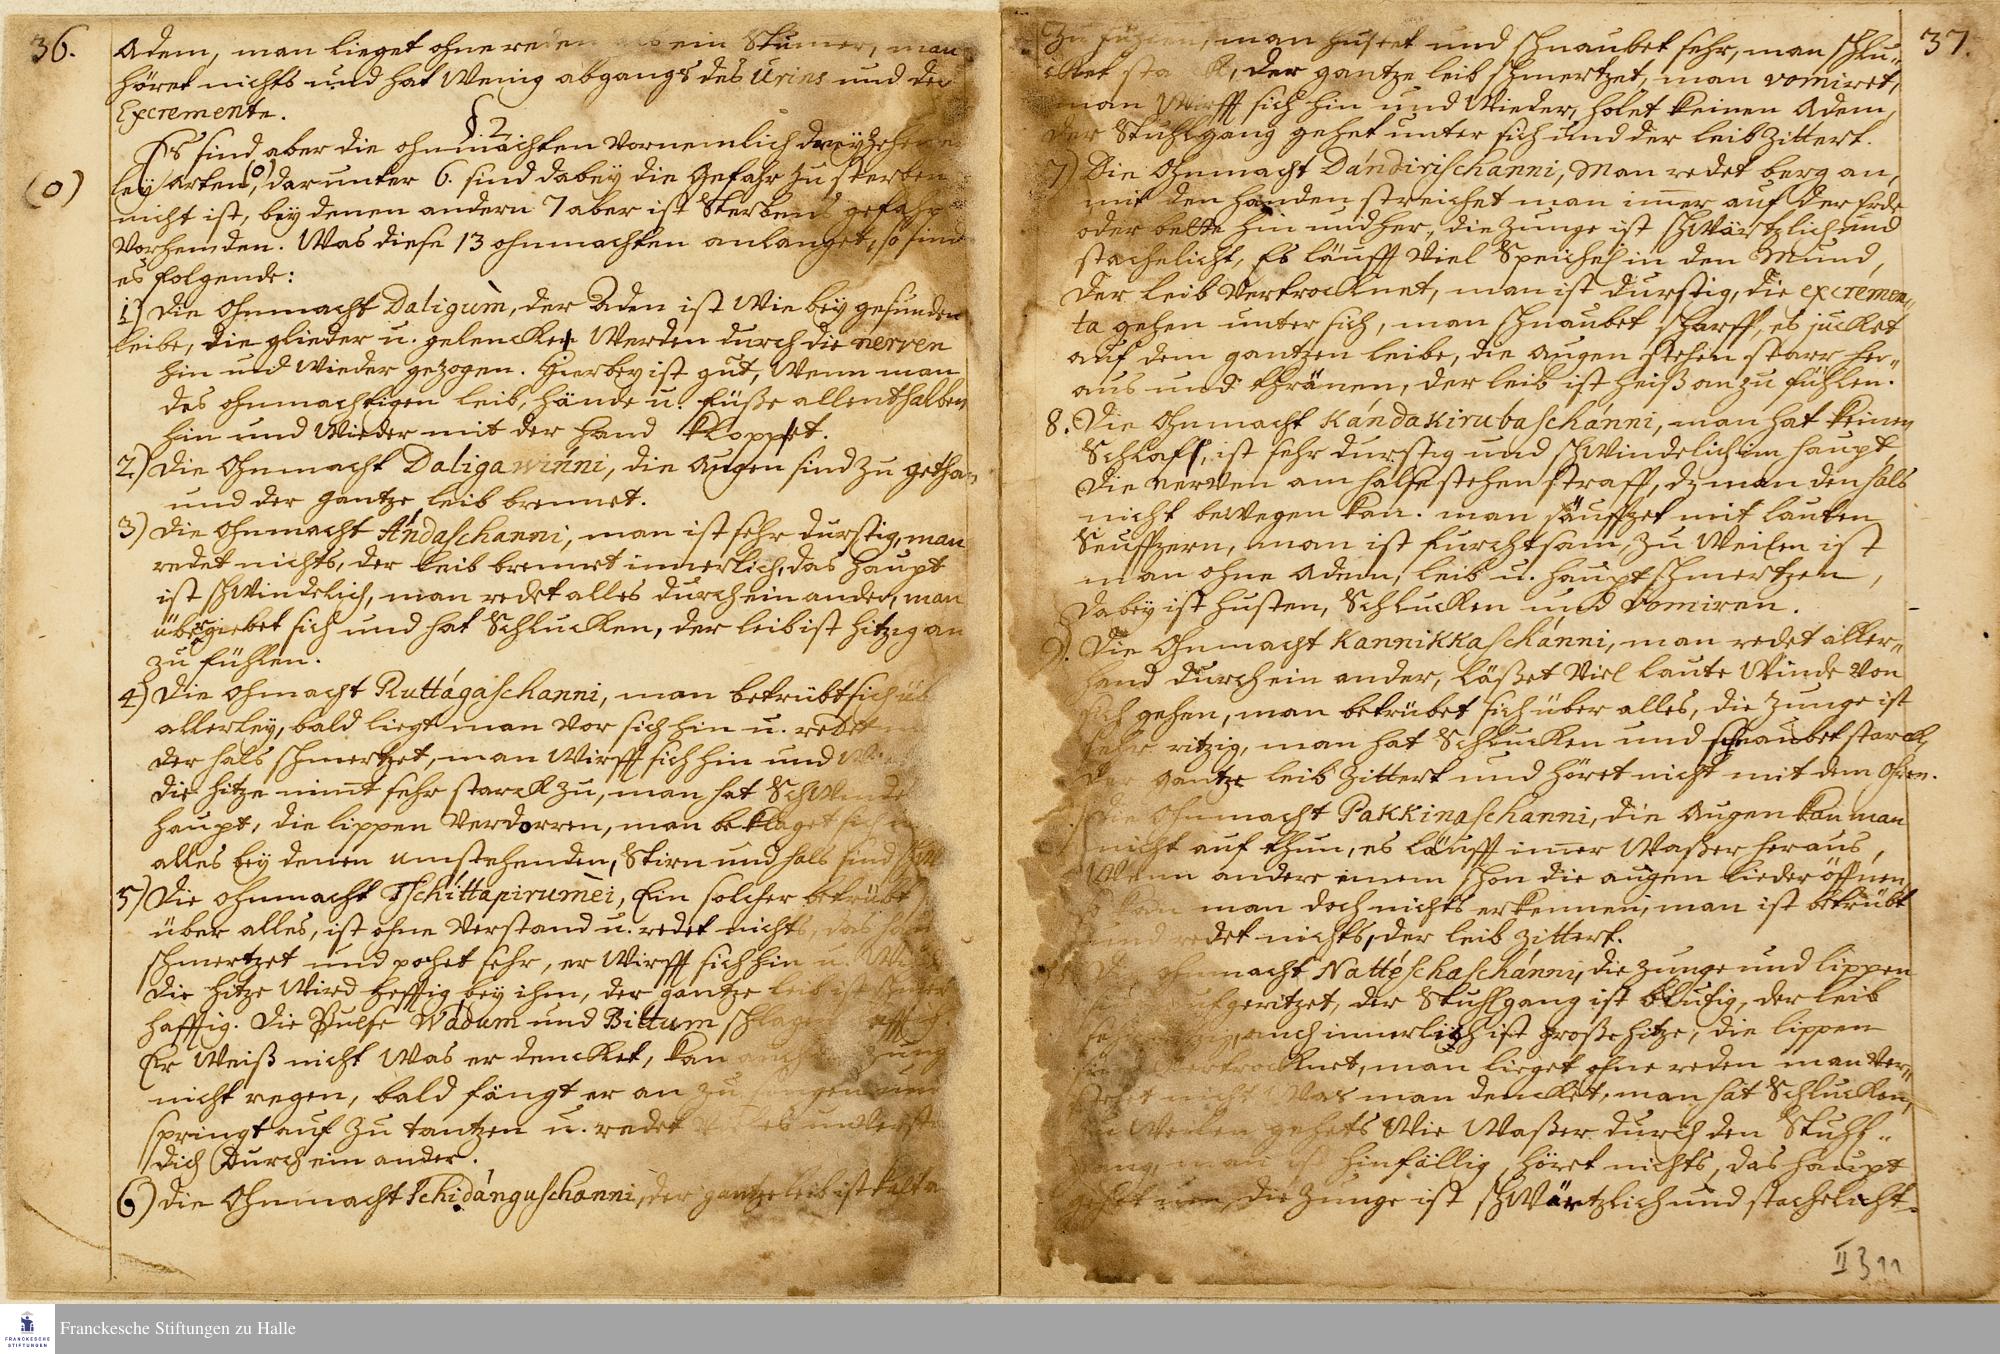 36.
Adem, man lieget ohne reden als ein Stumer, man
höret nichts und hat Wenig abgangs des Urins und der
Excremente.
§. 2
Es sind aber die ohnmächten Vornemlich dreyzehener
ley Arten, (o) darunter 6. sind dabey die Gefahr zu sterben
(o)
nicht ist, bey denen andern 7 aber ist Sterbens gefahr
Vorhemden. Was diese 13 ohnmachten anlanget, so sind
es folgende:
1) Die Ohnmacht Daligum, der Aden ist Wie bey gesunden
leibe, die glieder u. gelencket Werden durch die nerven
hin und Wieder gezogen. Hierbey ist gut, Wenn man
des ohnmachtigen leib, Hände u. füße allenthalben
hin und Wieder mit der Hand kloppfet.
2.) Die Ohnmacht Daligawinni, die Augen sind zu getha-
und der gantze leib brennet.
3) Die Ohnmacht Ándaschanni, man ist sehr durstig, man
redet nichts, der leib brennet innerlich, das Haupt
ist schwindelich, man redet alles durch ein ander, man
übergiebet sich und hat Schlucken, der leib ist hitzig an
zu fühlen.
4) Die Ohmacht Ruttágaschanni, man betrübt sich üb
allerley, bald liegt man Vor sich hin u. redet
der Hals schmertzet, man Wirfft sich hin und Wie
die Hitze nimt sehr starck zu, man hat Schwinde
Haupt, die lippen Verdorren, man beklaget sich
alles bey denen umstehenden, Stirn und Hals sind
5) Die ohnmacht Tschittapirumèi, Ein solcher betrübt
über alles, ist ohne Verstand u. redet nichts, das
schmertzet und pochet sehr, er Wirfft sich hin u.
die Hitze Wird hefftig bey ihm, der gantze leib ist
hafftig. Die Pulse Wádum und Bittum schlagen
Er Weiß nicht Was er dencket, kan auch Zung
nicht regen, bald fängt er an zu singen und
springt auf zu tantzen u. redet unverstä
dich Durch ein ander.
6) Die Ohnmacht Tschidánguschanni, der gantze leib ist kalt
37.
man hustet und schnaubet sehr, man schlu-
cket der gantze leib schmertzet, man vomiret,
man Wirfft sich hin und Wieder, holet keinen Adem,
der Stuhlgang gehet unter sich und der leib Zittert.
7) Die Ohnmacht Dándirischanni, Man redet berg an,
mit den Händen streichet man imer auf der Erde
oder bette hin und her, die Zunge ist schwärtzlich und
stachelicht, Es läufft Viel Speichel in den Mund,
der leib Vertrocknet, man ist durstig, die excremen-
ta gehen unter sich, man schnaubet scharff, es jucket
auf dem gantzen leibe, die Augen stehen starr her-
aus und thränen, der leib ist heiß anzu fühlen.
8. Die Ohnmacht Kándakirubaschánni, man hat keinen
Schlaff, ist sehr durstig und schwindelich im Haupt,
Die Nerven am Halse stehen straff, dz man den Hals
nicht bewegen kan. man säuffzet mit lauten
Seuffzern, man ist furchtsam, zu Weilen ist
man ohne Adem, leib u. Haupt schmertzen,
dabey ist Husten, Schlucken und Vomiren.
9. Die Ohnmacht Kannikkaschánni, man redet aller-
Hand durch ein ander, läßet Viel laute Winde Von
sich gehen, man betrübet sich über alles, die Zunge ist
sehr ritzig, man hat Schlucken und schnaubet starck,
der gantze leib Zittert und höret nicht mit dem Ohren.
Die Ohnmacht Pakkinaschanni, die Augen kan man
nicht auf thun, es läufft imer Waßer heraus,
Wenn andere einem schon die augen lieder öffnen
so kan man doch nichts erkennen, man ist betrübt
und redet nichts, der leib Zittert.
Die Ohnmacht Nattéschaschánni, die Zunge und lippen
aufgeritzet, der Stuhlgang ist blutig, der leib
auch innerlich ist große Hitze, die lippen
Vertrocknet, man lieget ohne reden man Ver-
stehet nicht Was man dencket, man hat Schlucken,
zu Weilen gehets Wie Waßer durch den Stuhl-
gang, man ist hinfällig, höret nichts, das Haupt
gehet um, die Zunge ist schwärtzlich und stachelicht.
Franckesche Stiftungen zu Halle
FRANCKESCHE
STIFTUNGEN